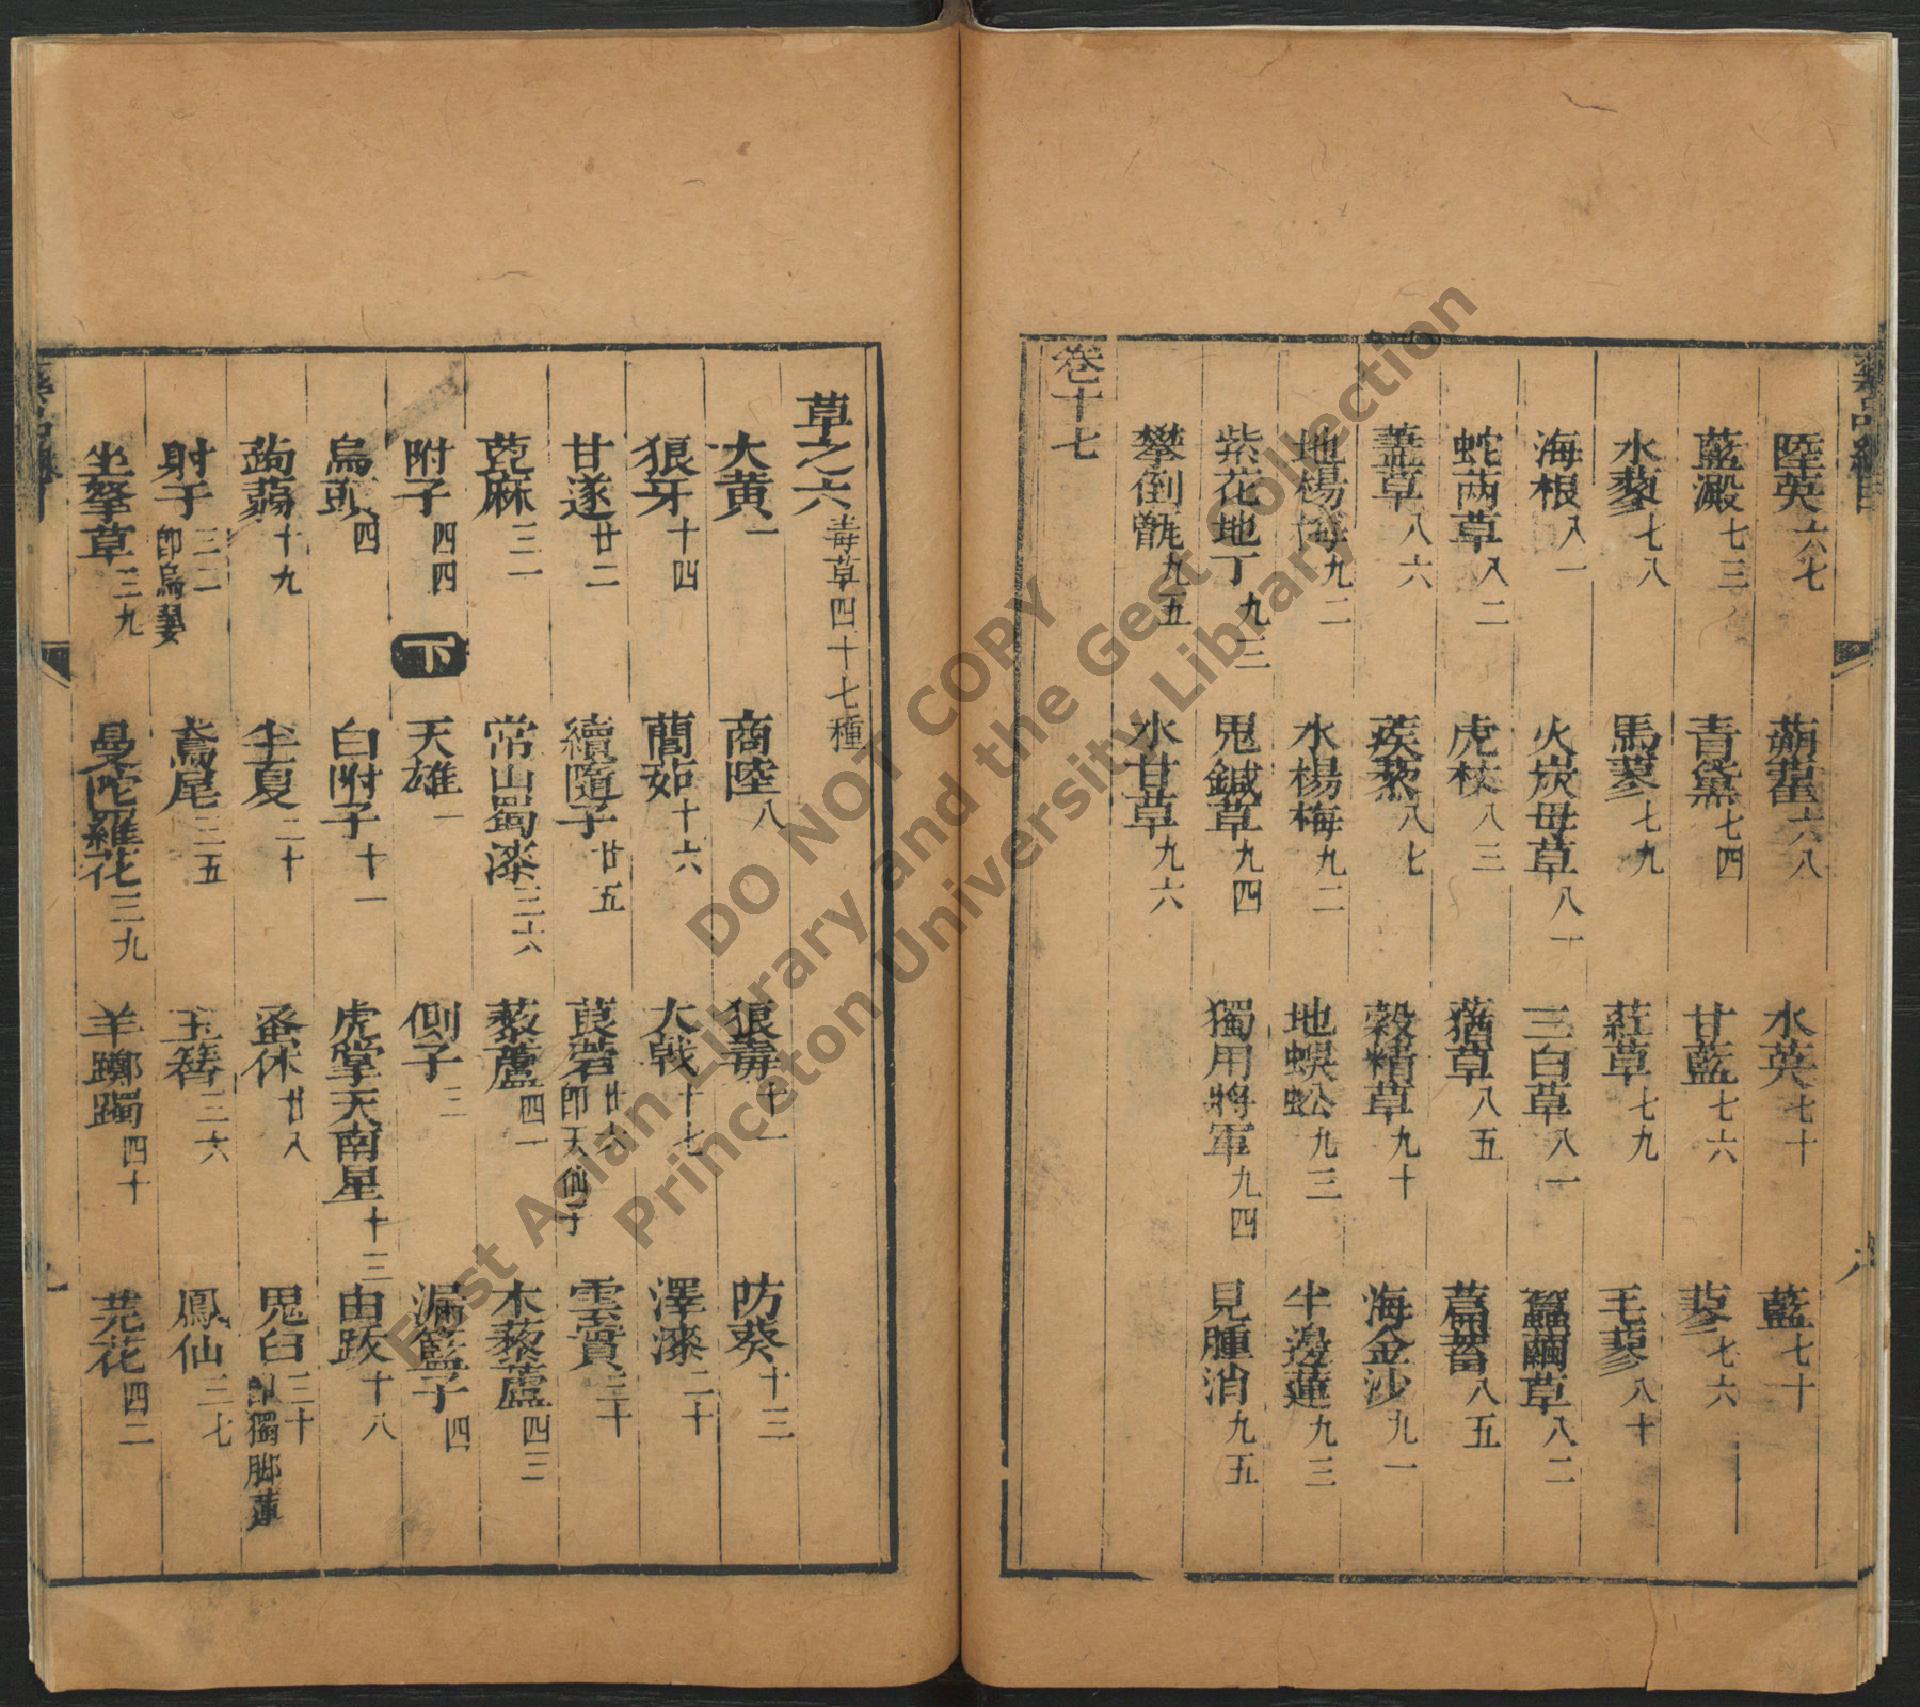 陸英六七 蒴藋六八 水英七十 藍七十
藍澱七三 青黛七四 甘藍七六 蓼七六
水蓼七八 馬蓼七九 葒草七九 毛蓼八十
海根八一 火炭母草八一 三白草八一 蠶繭草八二
蛇䓖草八二 虎杖八三 蕕草八五 萹蓄八五
藎草八六 蒺蔾八七 穀精草九十 海金沙九一
地楊梅九二 水楊梅九二 地蜈蚣九三 半邊蓮九三
紫花地丁九三 鬼鍼草九四 獨用將軍九四 見腫消九五
攀倒甑九五 水甘草九六
卷十七
草之六毒草四十七種
大黃一 商陸八 狼毒十一 防葵十三
狼牙十四 藺茹十六 大戟十七 澤漆二十
甘遂廿二 續隨子廿五 莨菪廿六即天仙子 雲實三十
萞麻三二 常山蜀漆三六 藜蘆四一 木藜蘆四三
附子四四 下 天雄一 側子三 漏籃子四
烏頭四 白附子十一 虎掌天南星十三 由跋十八
蒟蒻十九 半夏二十 蚤休廿八 鬼臼三十即獨脚蓮
射干三二即烏翣 鳶尾三五 玉簪三六 鳳仙三七
坐拏草三九 曼陀羅花三九 羊躑躅四十 芫花四二
DO NOT COPY
East Asian Library and the Gest Collection
Princeton University Library